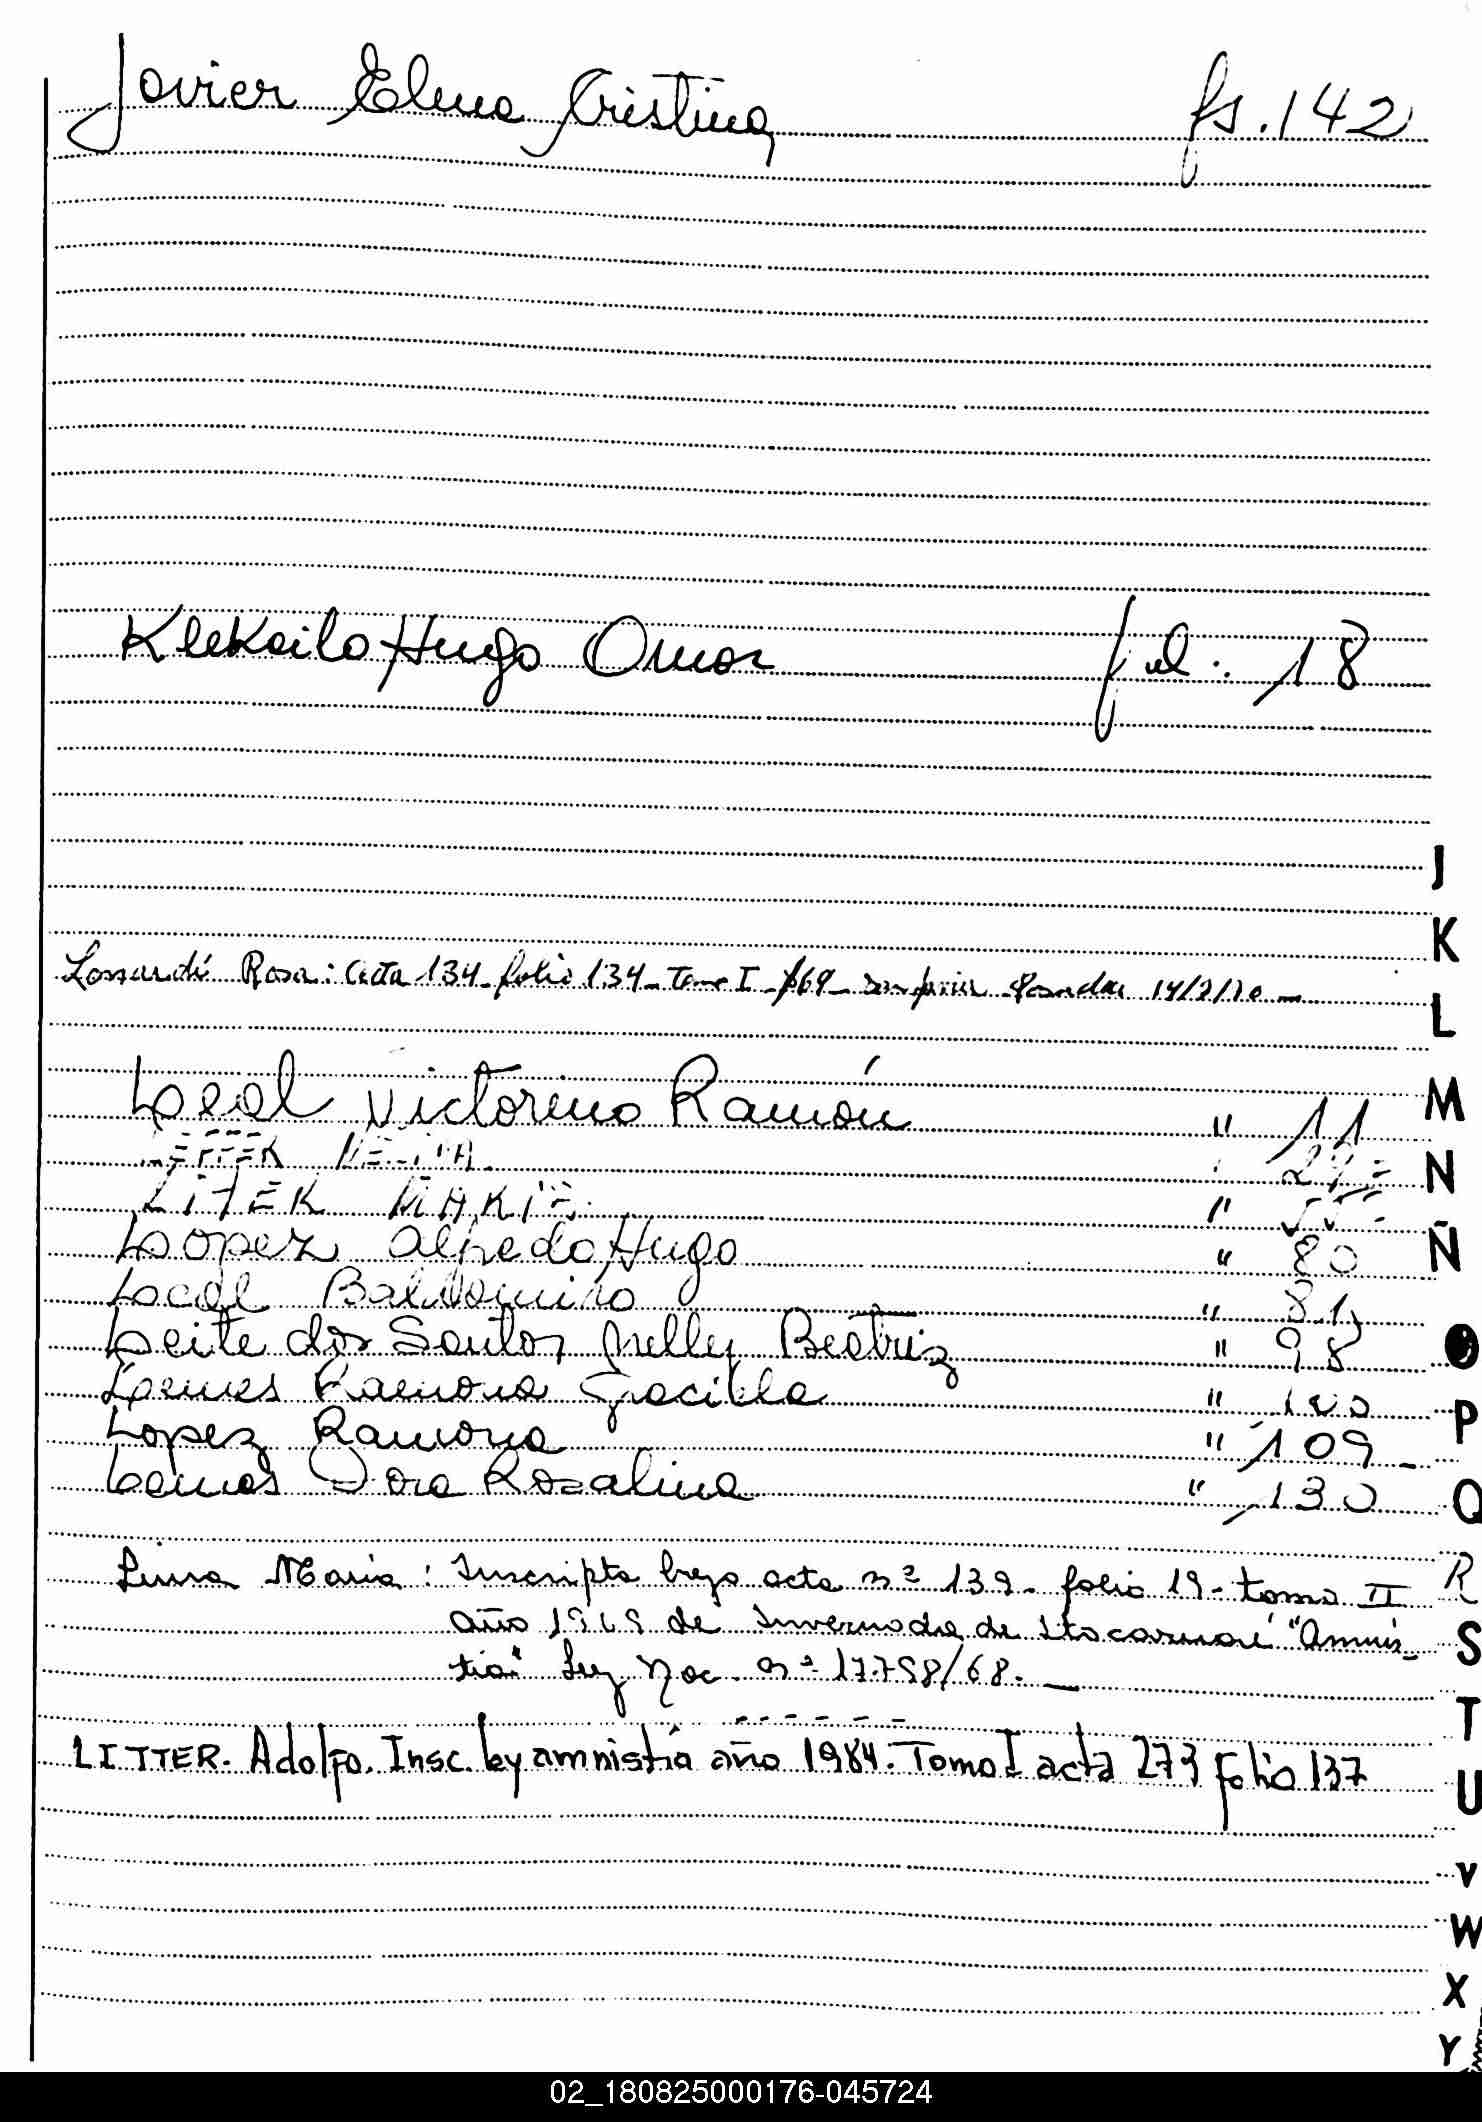 Javier Elena Cristina fs. 142
Klekailo Hugo Omar fol. 18
Rosa: acta 134 folio 134 - Tomo I - Posadas
Leal Victorino Ramón " 11
LEFFEK
LITEK MARIA "
Lopez Alfredo Hugo " 80
Leal Baldomiro " 81
Leite dos Santos Nelly Beatriz " 98
Lemes Ramona Graciela " 100
Lopez Ramona " 109
Lemes Dora Rosalina " 130
Lima Maria: Inscripta bajo acta nº 139 - folio 19 - tomo II
año 1969 de Invernada de Itacaruaré "Amnis
tia" Ley Nac. nº 17.798/68.
LITTER. Adolfo. Insc. ley amnistia año 1984. Tomo I acta 273 folio 137
J
K
L
M
N
Ñ
O
P
Q
R
S
T
U
V
W
X
Y
02_180825000176-045724